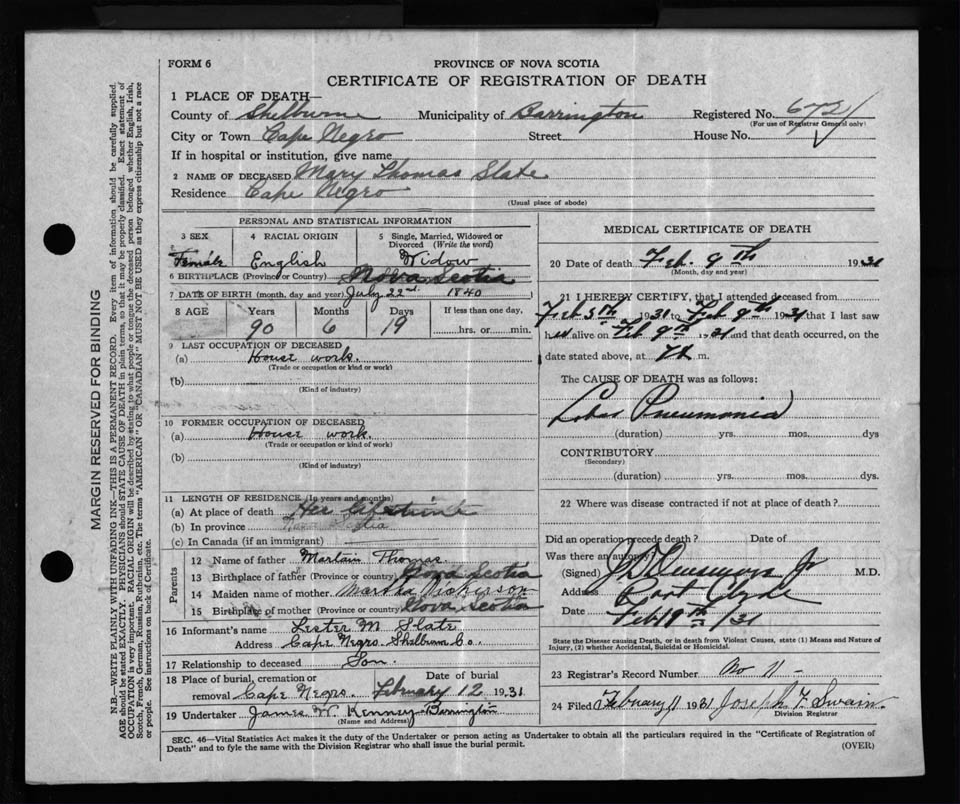 FORM 6
PROVINCE OF NOVA SCOTIA
CERTIFICATE OF REGISTRATION OF DEATH
1 PLACE OF DEATH—
County of Shelburne Municipality of Barrington Registered No. 672
(For use of Registrar General only)
City or Town Cape Negro Street House No.
If in hospital or institution, give name
2 NAME OF DECEASED Mary Thomas Slate
Residence Cape Negro
(Usual place of abode)
PERSONAL AND STATISTICAL INFORMATION
3 SEX 4 RACIAL ORIGIN 5 Single, Married, Widowed or Divorced (Write the word)
Female English Widow
6 BIRTHPLACE (Province or Country) Nova Scotia
7 DATE OF BIRTH (month, day and year) July 22nd 1840
8 AGE Years Months Days If less than one day,
90 6 19 hrs. or min.
9 LAST OCCUPATION OF DECEASED
(a) House work.
(Trade or occupation or kind or work)
(b)
(Kind of industry)
10 FORMER OCCUPATION OF DECEASED
(a) House work.
(Trade or occupation or kind of work)
(b)
(Kind of industry)
11 LENGTH OF RESIDENCE (In years and months)
(a) At place of death Her life time
(b) In province Nova Scotia
(c) In Canada (if an immigrant)
Parents
12 Name of father Martain Thomas
13 Birthplace of father (Province or country) Nova Scotia
14 Maiden name of mother Martha Nickerson
15 Birthplace of mother (Province or country) Nova Scotia
16 Informant's name Lester M. Slate
Address Cape Negro Shelburne Co.
17 Relationship to deceased Son.
18 Place of burial, cremation or removal Cape Negro. Date of burial February 12 1931
19 Undertaker James W. Kenney Barrington
(Name and Address)
MEDICAL CERTIFICATE OF DEATH
20 Date of death Feb. 9th 1931
(Month, day and year)
21 I HEREBY CERTIFY, that I attended deceased from
Feb 3th 1931 to Feb 9th 1931 that I last saw
h er alive on Feb 9th 1931 and that death occurred, on the
date stated above, at m.
The CAUSE OF DEATH was as follows:
Lobar Pneumonia
(duration) yrs. mos. dys
CONTRIBUTORY
(Secondary)
(duration) yrs. mos. dys.
22 Where was disease contracted if not at place of death?
Did an operation precede death? Date of
Was there an autopsy?
(Signed) Jr M.D.
Address Port Clyde
Date Feb 19th /31
State the Disease causing Death, or in death from Violent Causes, state (1) Means and Nature of
Injury, (2) whether Accidental, Suicidal or Homicidal.
23 Registrar's Record Number No 11 -
24 Filed February 11 1931 Joseph F. Swain.
Division Registrar
SEC. 46—Vital Statistics Act makes it the duty of the Undertaker or person acting as Undertaker to obtain all the particulars required in the "Certificate of Registration of
Death" and to fyle the same with the Division Registrar who shall issue the burial permit.
(OVER)
MARGIN RESERVED FOR BINDING
N.B.—WRITE PLAINLY WITH UNFADING INK—THIS IS A PERMANENT RECORD. Every item of information should be carefully supplied.
AGE should be stated EXACTLY. PHYSICIANS should STATE CAUSE OF DEATH in plain terms, so that it may be properly classified. Exact statement of
OCCUPATION is very important. RACIAL ORIGIN will be described by stating to what people or tongue the deceased person belonged whether English, Irish,
Scotch, French, German, Russian, Ruthenian, etc. The terms "AMERICAN" OR "CANADIAN" MUST NOT BE USED as they express citizenship but not a race
or people. See instructions on back of Certificate.